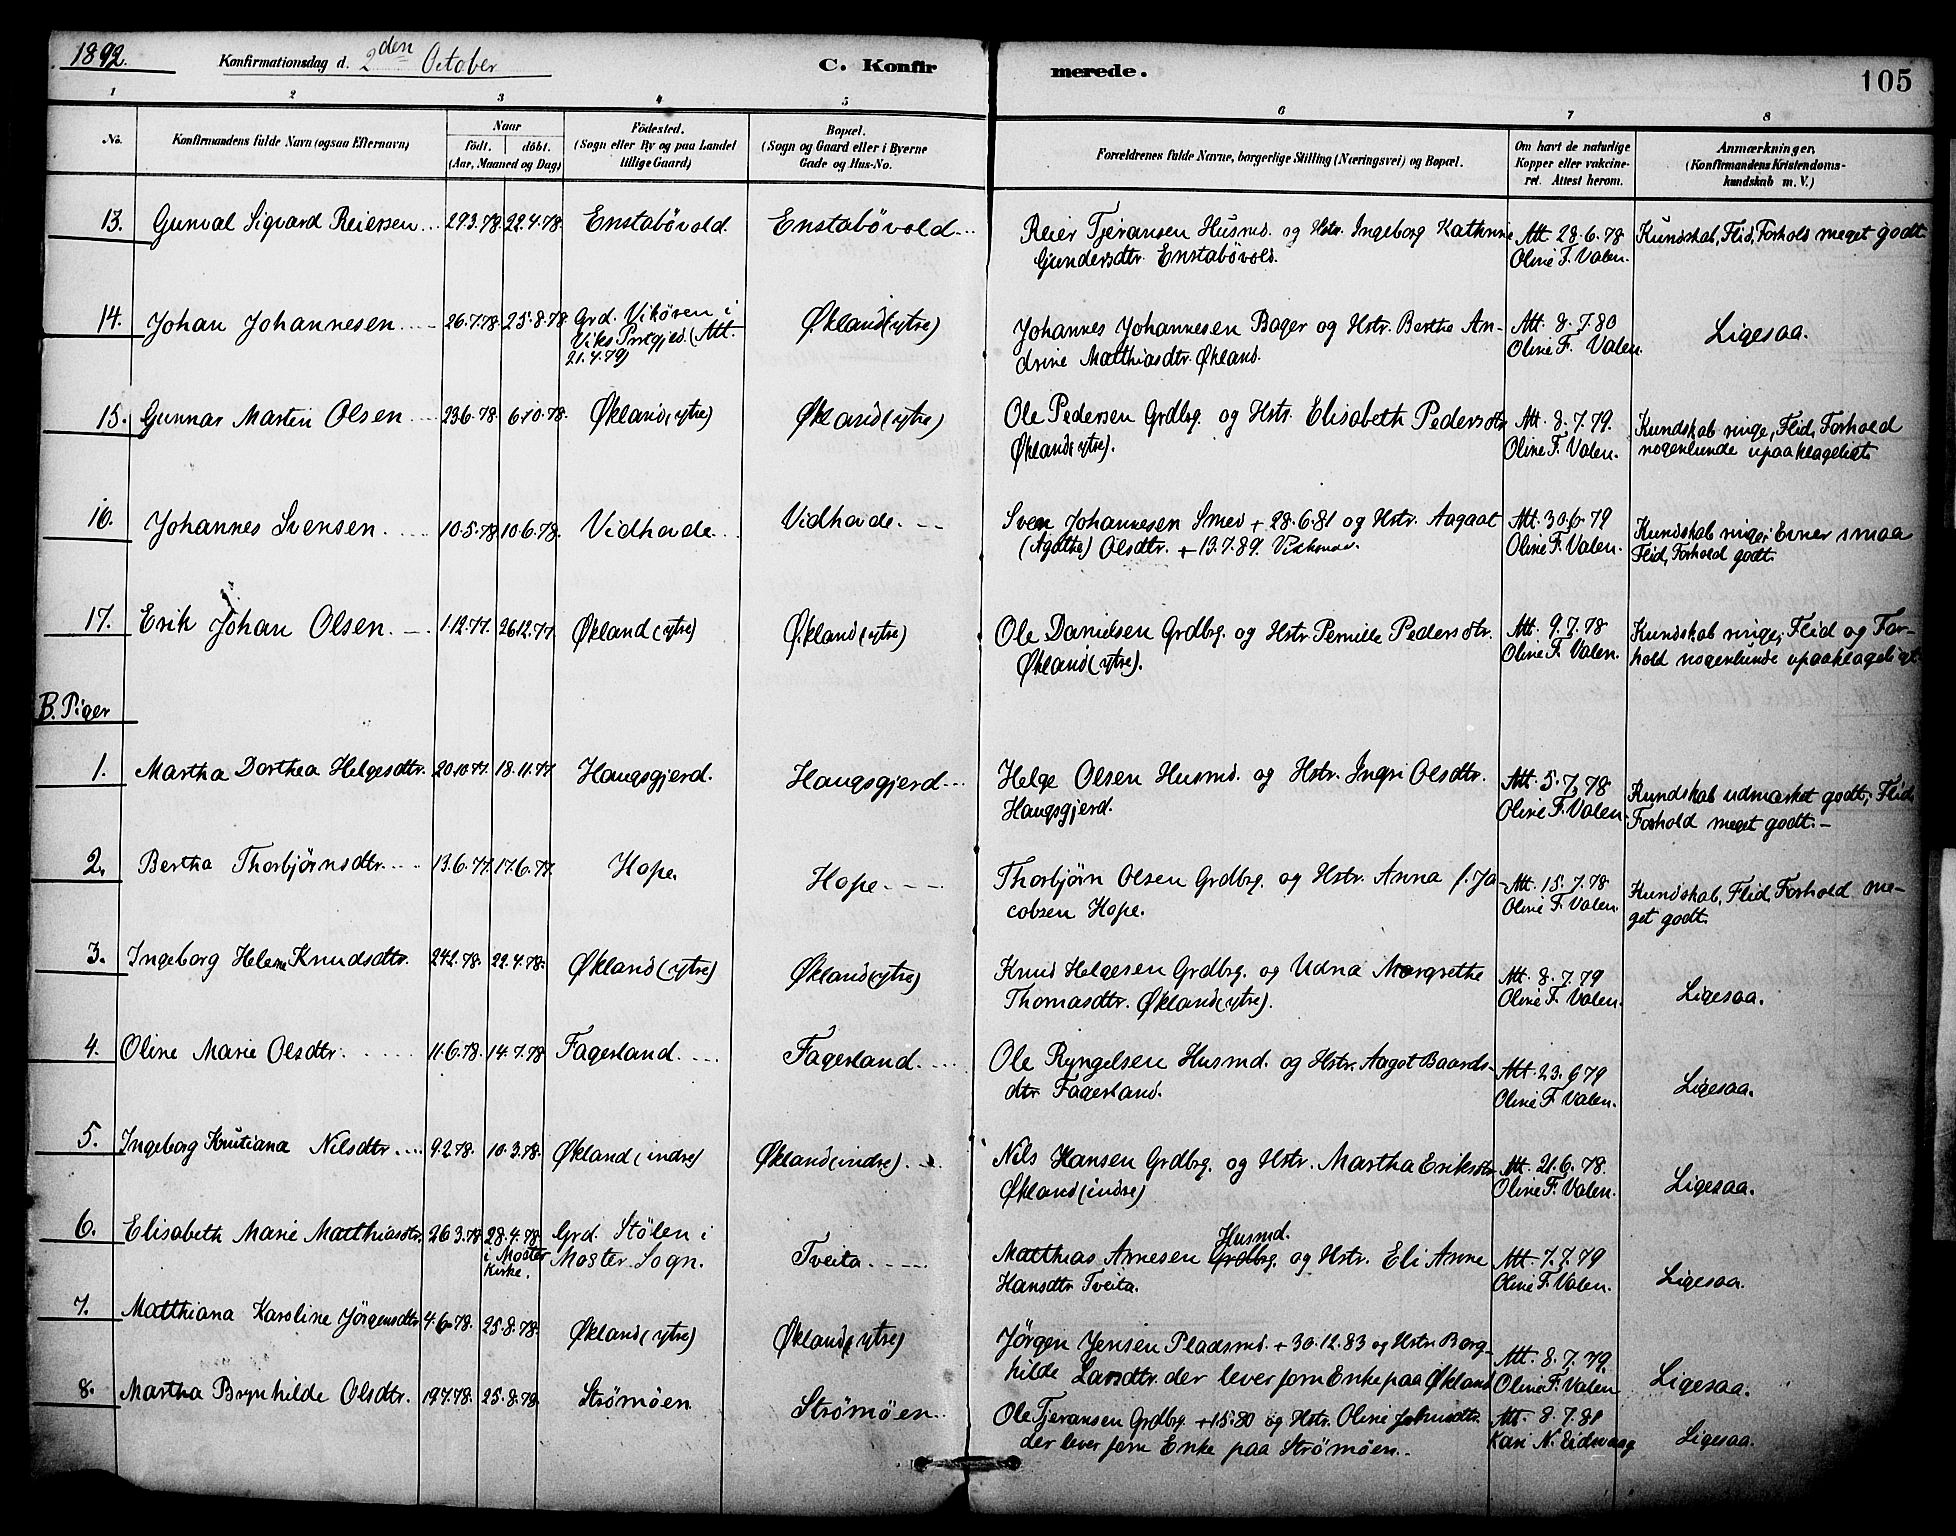 1892. Konfirmationsdag d. 2den October C. Konfirmerede. 105
1 2 3 4 5 6 7 8
No. Konfirmandens fulde Navn (ogsaa Efternavn) Naar født. døbt. (Aar, Maaned og Dag) Fødested. (Sogn eller By og paa Landet tillige Gaard) Bopæl. (Sogn og Gaard eller i Byerne Gade og Hus-No. Forældrenes fulde Navne, borgerlige Stilling (Næringsvei) og Bopæl. Om havt de naturlige Kopper eller vakcineret. Attest herom. Anmærkninger, (Konfirmandens Kristendomskundskab m. V.)
13. Gunval Sigvard Reiersen 29.3.78. 22.4.78. Enstabövold. Enstabövold Reier Tjeransen Husmd. og Hstr. Ingeborg Kathrine Att. 28.6.78 Kundskab, Flid, Forhold meget godt.
Gundersdtr. Enstabövold. Oline F. Valen.
14. Johan Johannesen 26.7.78. 25.8.78 Grd. Vikören i Økland (ytre) Johannes Johannesen Bager og Hstr. Berthe An- Att. 8.7.80 Ligesaa.
Viks Prstgjeld. (Att. drine Matthiasdtr. Økland. Oline F. Valen.
21.4.79)
15. Gunnar Martin Olsen 23.6.78. 6.10.78. Økland (ytre) Økland (ytre) Ole Pedersen Grdbrg. og Hstr. Elisabeth Pedersdtr. Att. 8.7.79. Kundskab ringe, Flid, Forhold
Økland (ytre). Oline F. Valen. nogenlunde upaaklageligt
16. Johannes Svensen. 10.5.78 10.6.78. Vidhovde. Vidhovde. Sven Johannesen Smed + 28.6.81 og Hstr. Aagaat Att. 30.6.79 Kundskab ringe; Evner smaa
(Agathe) Olsdtr. + 13.7.89. Oline F. Valen. Flid, Forhold godt.
17. Erik Johan Olsen. 1.12.77. 26.12.77. Økland (ytre) Økland (ytre) Ole Danielsen Grdbrg. og Hstr. Pernille Pedersdtr. Att. 9.7.78 Kundskab ringe; Flid og For-
Økland (ytre). Oline F. Valen. hold nogenlunde upaaklageligt.
B. Piger
1. Martha Dorthea Helgesdtr. 20.10.77. 18.11.77 Haugsgjerd. Haugsgjerd Helge Olsen Husmd. og Hstr. Ingri Olsdtr. Att. 5.7.78 Kundskab udmærket godt; Flid,
Haugsgjerd. Oline F. Valen. Forhold meget godt.–
2. Bertha Thorbjørnsdtr. 13.6.77. 17.6.77. Hope. Hope Thorbjørn Olsen Grdbrg. og Hstr. Anna f. Ja- Att. 15.7.78 Kundskab, Flid, Forhold me-
cobsen Hope. Oline F. Valen. get godt.
3. Ingeborg Helene Knudsdtr. 24.2.78. 22.4.78. Økland (ytre) Økland (ytre) Knud Helgesen Grdbrg. og Udna Margrethe Att. 8.7.79 Ligesaa.
Thomasdtr. Økland (ytre). Oline F. Valen.
4. Oline Marie Olsdtr. 11.6.78. 14.7.78 Fagerland. Fagerland. Ole Ryngelsen Husmd. og Hstr. Aagot Baards- Att. 23.6.79 Ligesaa.
dtr Fagerland. Oline F. Valen.
5. Ingeborg Knutiana Nilsdtr. 9.2.78. 10.3.78. Økland (indre) Økland (indre). Nils Hansen Grdbrg. og Hstr. Martha Eriksdtr. Att. 21.6.78. Ligesaa.
Økland (indre) Oline F. Valen.
6. Elisabeth Marie Matthiasdtr. 26.3.78 28.4.78. Grd. Stölen i Tveita Matthias Arnesen Grdbrg. Husmd. og Hstr. Eli Anne Att. 7.7.79 Ligesaa.
i Moster Kirke. Moster Sogn. Hansdtr. Tveita. Oline F. Valen.
7. Matthiana Karoline Jörgensdtr. 4.6.78. 25.8.78. Økland (ytre) Økland (ytre) Jörgen Jensen Pladsmd. + 30.12.83 og Hstr. Borg- Att. 8.7.79. Ligesaa.
hilde Larsdtr. der lever som Enke paa Økland Oline F. Valen
8. Martha Brynhilde Olsdtr. 19.7.78. 25.8.78. Strömöen Strömöen. Ole Tjeransen Grdbrg. og Hstr. Oline Att. 8.7.81 Ligesaa.
der lever som Enke paa Strömöen. Kari N. Eidsvaag